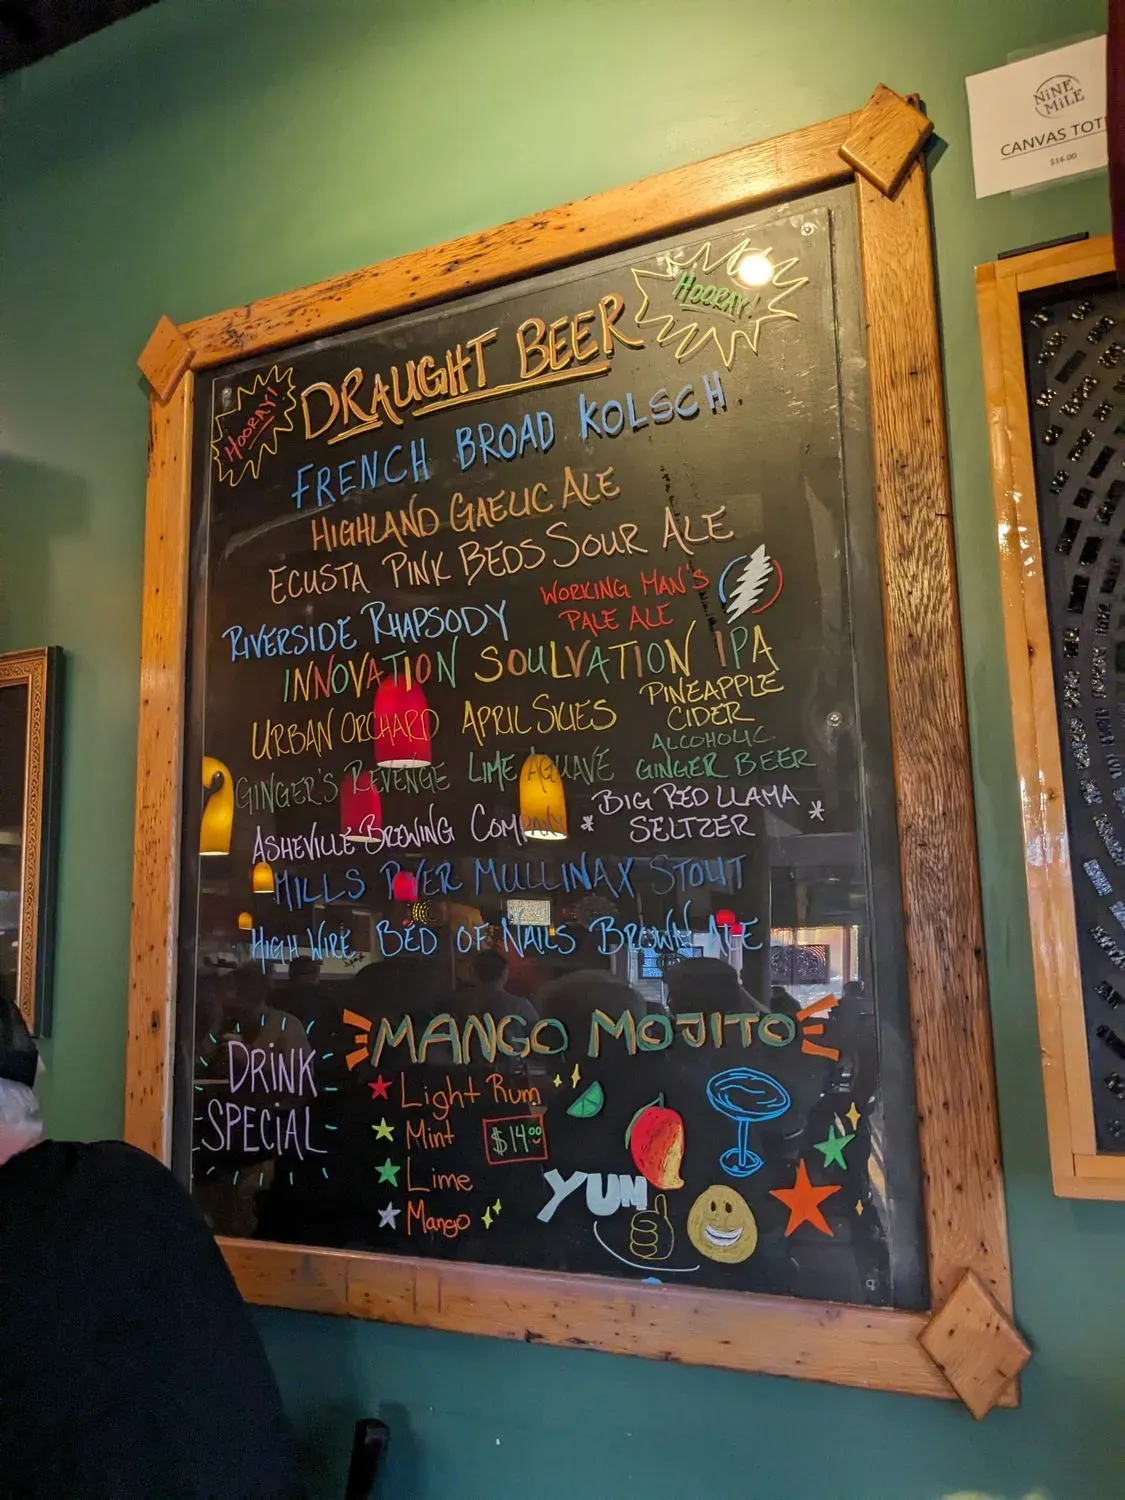 NiNE
MiLE
CANVAS
$16.00
HOORAY!
DRAUGHT BEER
HOORAY!
FRENCH BROAD KOLSCH
HIGHLAND GAELIC ALE
ECUSTA PINK BEDS SOUR ALE
RIVERSIDE RHAPSODY
WORKING MAN'S
PALE ALE
INNOVATION SOULVATION IPA
URBAN ORCHARD APRIL SKIES
PINEAPPLE
CIDER
GINGER'S REVENGE LIME AGUAVE
ALCOHOLIC
GINGER BEER
ASHEVILLE BREWING COMPANY *
BIG RED LLAMA
SELTZER *
MILLS RIVER MULLINAX STOUT
HIGH WIRE BED OF NAILS BROWN ALE
DRINK
SPECIAL
MANGO MOJITO
Light Rum
Mint
$14.00
Lime
Mango
YUM